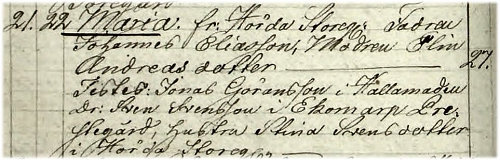 21. 22. Maria. fr: Hörda Storeg: Fadren
Johannes Eliasson, Modren Elin
Andreas dotter 27.
Testes: Jonas Göransson i Hallamaden
Dr: Sven Svensson i Ekornarp Pre-
stegård, hustru Stina Svensdotter
i Hörda Storeg